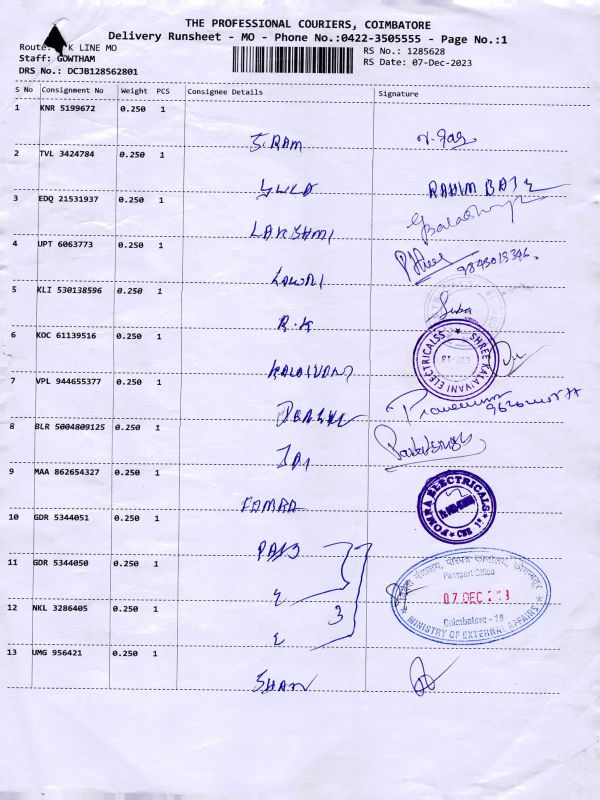 THE PROFESSIONAL COURIERS, COIMBATORE
Delivery Runsheet - MO - Phone No.:0422-3505555 - Page No.:1
Route: K LINE MO
Staff: GOWTHAM
DRS No.: DCJB128562801
RS No.: 1285628
RS Date: 07-Dec-2023
S No Consignment No Weight PCS Consignee Details Signature
1 KNR 5199672 0.250 1 SRAM
2 TVL 3424784 0.250 1 RAHIM
3 EDQ 21531937 0.250 1 LAKSHMI
4 UPT 6063773 0.250 1
5 KLI 530138596 0.250 1 R.K Suba
6 KOC 61139516 0.250 1 KALAIVANI SHREE KALAIVANI ELECTRICALSS
7 VPL 944655377 0.250 1
8 BLR 5004809125 0.250 1 JAI
9 MAA 862654327 0.250 1 FOMRA FOMRA ELECTRICALS CBE
10 GDR 5344051 0.250 1 PASS
11 GDR 5344050 0.250 1 3
12 NKL 3286405 0.250 1
Passport Office
07 DEC
Coimbatore - 18
MINISTRY OF EXTERNAL AFFAIRS
13 UMG 956421 0.250 1 SHAN